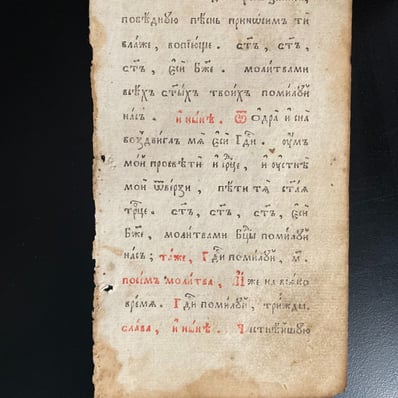 побѣдную пѣснь приноси́мъ ти
бл҃же, вопїюще. ст҃ъ, ст҃ъ,
ст҃ъ, є҆сѝ бж҃е. молитвами
всѣхъ ст҃ы́хъ твоихъ помилꙋй
насъ. и҆ нн҃ѣ. Ѿ ѻ҆дра̀ и҆ сна̀
воздвиглъ мѧ̀ є҆сѝ гдⷭ҇и. ᲂу҆мъ
мо́й просвѣтѝ и҆ срⷣце, и҆ ᲂу҆стнѣ̀
мо́и ѿве́рзи, пѣ́ти тѧ̀ ст҃а́ѧ
трⷪ҇це. ст҃ъ, ст҃ъ, ст҃ъ, є҆сѝ
бж҃е, молитвами бцⷣы помилꙋй
насъ; та́же, гдⷭ҇и помилꙋй, м҃.
посе́мъ молитва, И҆́же на всѧ́ко
времѧ. гдⷭ҇и помилꙋй, трижды.
слава, и҆ нн҃ѣ. Честнѣ́йшꙋю